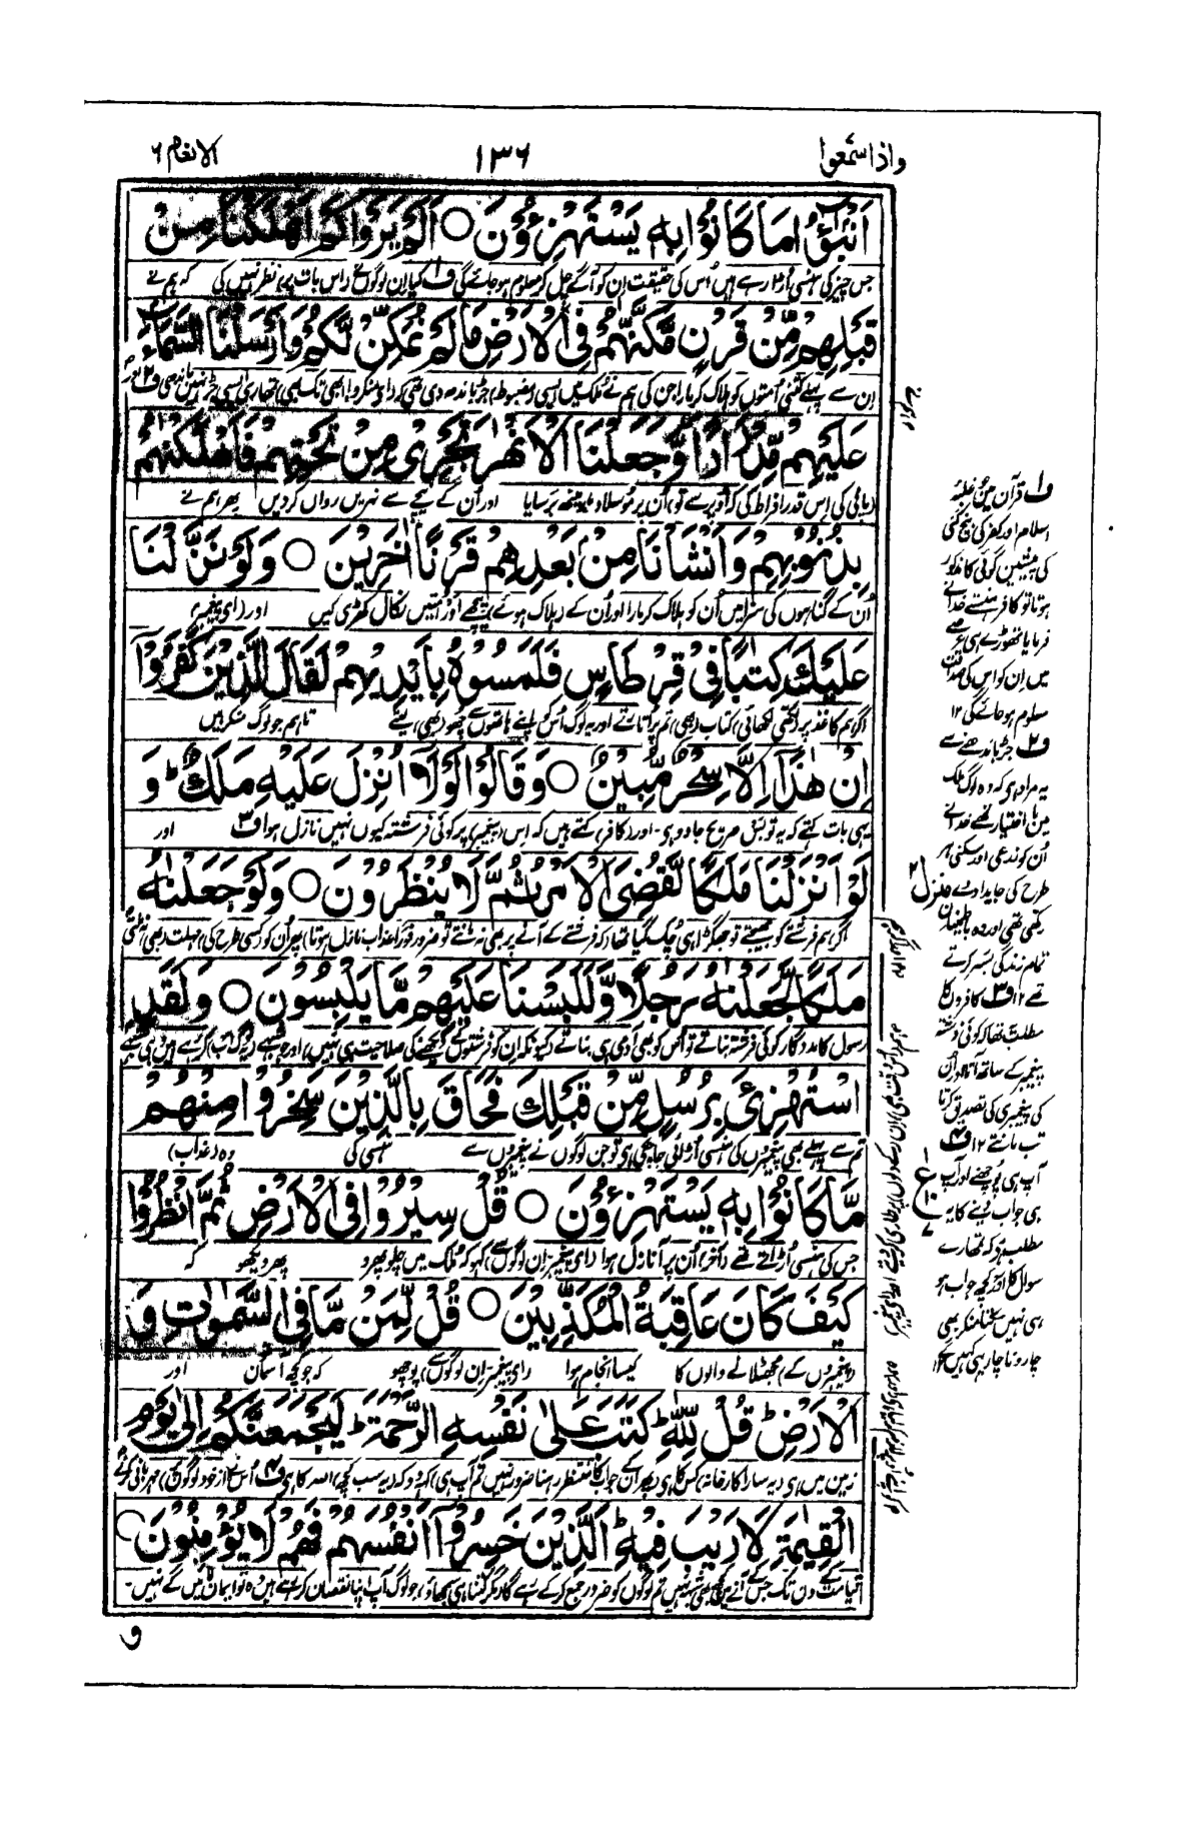 واذاسمعوا
١٣٦
الانعام ٦
اَنْۢبٰٓؤُا مَا كَانُوْا بِهٖ يَسْتَهْزِءُوْنَ ○ اَلَمْ يَرَوْا كَمْ اَهْلَكْنَا مِنْ
جس چیز کی ہنسی اُڑا رہے ہیں اُس کی حقیقت اِن کو آگے چل کر معلوم ہو جائے گی ف۱ کیا اِن لوگوں نے (اِس بات پر) نظر نہیں کی کہ ہم نے
قَبْلِهِمْ مِّنْ قَرْنٍ مَّكَّنّٰهُمْ فِى الْاَرْضِ مَا لَمْ نُمَكِّنْ لَّكُمْ وَاَرْسَلْنَا السَّمَآءَ
اِن سے پہلے کتنی اُمتوں کو ہلاک کر مارا جن کی ہم نے ملک میں ایسی (مضبوط) جڑ باندھ دی تھی کہ (ای منکرو) ابھی تک
عَلَيْهِمْ مِّدْرَارًا وَّجَعَلْنَا الْاَنْهٰرَ تَجْرِىْ مِنْ تَحْتِهِمْ فَاَهْلَكْنٰهُمْ
(پانی کی اِس قدر افراط کی کہ اُوپر سے تو) اُن پر مُوسلا دھار مینھ برسایا اور اُن کے نیچے سے نہریں رواں کر دیں پھر ہم نے
بِذُنُوْبِهِمْ وَاَنْشَاْنَا مِنْۢ بَعْدِهِمْ قَرْنًا اٰخَرِيْنَ ○ وَلَوْ نَزَّلْنَا
اُن کے گناہوں کی سزا میں اُن کو ہلاک کر مارا اور اُن کے (ہلاک ہوئے) پیچھے اور اُمتیں نکال کھڑی کیں اور (ای پیغمبر)
عَلَيْكَ كِتٰبًا فِىْ قِرْطَاسٍ فَلَمَسُوْهُ بِاَيْدِيْهِمْ لَقَالَ الَّذِيْنَ كَفَرُوْۤا
اگر ہم کاغذ پر (لکھی لکھائی) کتاب (بھی) تم پر اُتارتے اور یہ لوگ اُس کو اپنے ہاتھوں سے چھو (بھی) لیتے تاہم جو لوگ منکر ہیں
اِنْ هٰذَاۤ اِلَّا سِحْرٌ مُّبِيْنٌ ○ وَقَالُوْا لَوْلَاۤ اُنْزِلَ عَلَيْهِ مَلَكٌ ؕ وَ
یہی بات کہتے کہ یہ تو بس صریح جادو ہی۔ اور (کافر) کہتے ہیں کہ اِس (پیغمبر) پر کوئی فرشتہ کیوں نہیں نازل ہوا ف۳ اور
لَوْ اَنْزَلْنَا مَلَكًا لَّقُضِىَ الْاَمْرُ ثُمَّ لَا يُنْظَرُوْنَ ○ وَلَوْ جَعَلْنٰهُ
اگر ہم فرشتے کو بھیجتے تو جھگڑا ہی چُک گیا تھا کہ فرشتے کے آنے پر بھی نہ مانتے تو ضرور فوراً عذاب نازل ہوتا) پھر اُن کو (کسی طرح کی) مہلت (بھی)
مَلَكًا لَّجَعَلْنٰهُ رَجُلًا وَّلَلَبَسْنَا عَلَيْهِمْ مَّا يَلْبِسُوْنَ ○ وَلَقَدِ
رسول کا مددگار کوئی فرشتہ بناتے تو اُس کو بھی آدمی ہی بناتے کیونکہ اِن کو فرشتوں کے دیکھنے کی صلاحیت ہی نہیں)
اسْتُهْزِئَ بِرُسُلٍ مِّنْ قَبْلِكَ فَحَاقَ بِالَّذِيْنَ سَخِرُوْا مِنْهُمْ
تم سے پہلے بھی پیغمبروں کی ہنسی اُڑائی جا چکی ہی تو جن لوگوں نے پیغمبروں سے ہنسی کی وہ (عذاب)
مَّا كَانُوْا بِهٖ يَسْتَهْزِءُوْنَ ○ قُلْ سِيْرُوْا فِى الْاَرْضِ ثُمَّ انْظُرُوْا
جس کی ہنسی اُڑاتے تھے (آخر) اُن پر آ نازل ہوا (ای پیغمبر اِن لوگوں سے) کہو کہ مُلک میں چلو پھرو پھر دیکھو کہ
كَيْفَ كَانَ عَاقِبَةُ الْمُكَذِّبِيْنَ ○ قُلْ لِّمَنْ مَّا فِى السَّمٰوٰتِ وَ
(پیغمبروں کے) جھٹلانے والوں کا کیسا انجام ہوا (ای پیغمبر اِن لوگوں سے) پوچھو کہ جو کچھ آسمان اور
الْاَرْضِ ؕ قُلْ لِّلّٰهِ ؕ كَتَبَ عَلٰى نَفْسِهِ الرَّحْمَةَ ؕ لَيَجْمَعَنَّكُمْ اِلٰى يَوْمِ
زمین میں ہی (یہ سارا کارخانہ) کس کا ہی (پھر اُن کے جواب کا منتظر رہنا ضرور نہیں تم آپ ہی) کہدو کہ (یہ سب کچھ) اللہ کا ہی ف۴
الْقِيٰمَةِ لَا رَيْبَ فِيْهِ ؕ اَلَّذِيْنَ خَسِرُوْۤا اَنْفُسَهُمْ فَهُمْ لَا يُؤْمِنُوْنَ
قیامت کے دن تک جس کے آنے میں کچھ بھی شبہ نہیں تم لوگوں کو ضرور جمع کرکے رہے گا
ف۱ قرآن میں غلبۂ
اسلام اور کفر کی بیخ کنی
کی پیشین گوئی کا مذکور
ہوتا تو کافر ہنستے خدا نے
فرمایا تھوڑے ہی عرصے
میں اِن کو اس کی صداقت
معلوم ہو جائے گی ۱۲
ف۲ جڑ باندھنے سے
یہ مراد ہی کہ وہ لوگ ملک
میں با اختیار تھے خدا نے
اُن کو زرعی اور سکنی ہر
طرح کی جایداد دے
منزل ۲
رکھی تھی اور وہ باطمینان
تمام زندگی بسر کرتے
تھے ۱۲ ف۳ کافروں کا
مطلب تھا کہ کوئی فرشتہ
پیغمبر کے ساتھ آتا اور اُن
کی پیغمبری کی تصدیق کرتا
تب مانتے ۱۲ ف۴
آپ ہی پوچھنے اور آپ
ہی جواب دینے کا یہ
مطلب ہی کہ تمہارے
سوال کا اور کچھ جواب ہو
ہی نہیں سکتا منکر بھی
چار و ناچار یہی کہیں گے ۱۲
ع
و